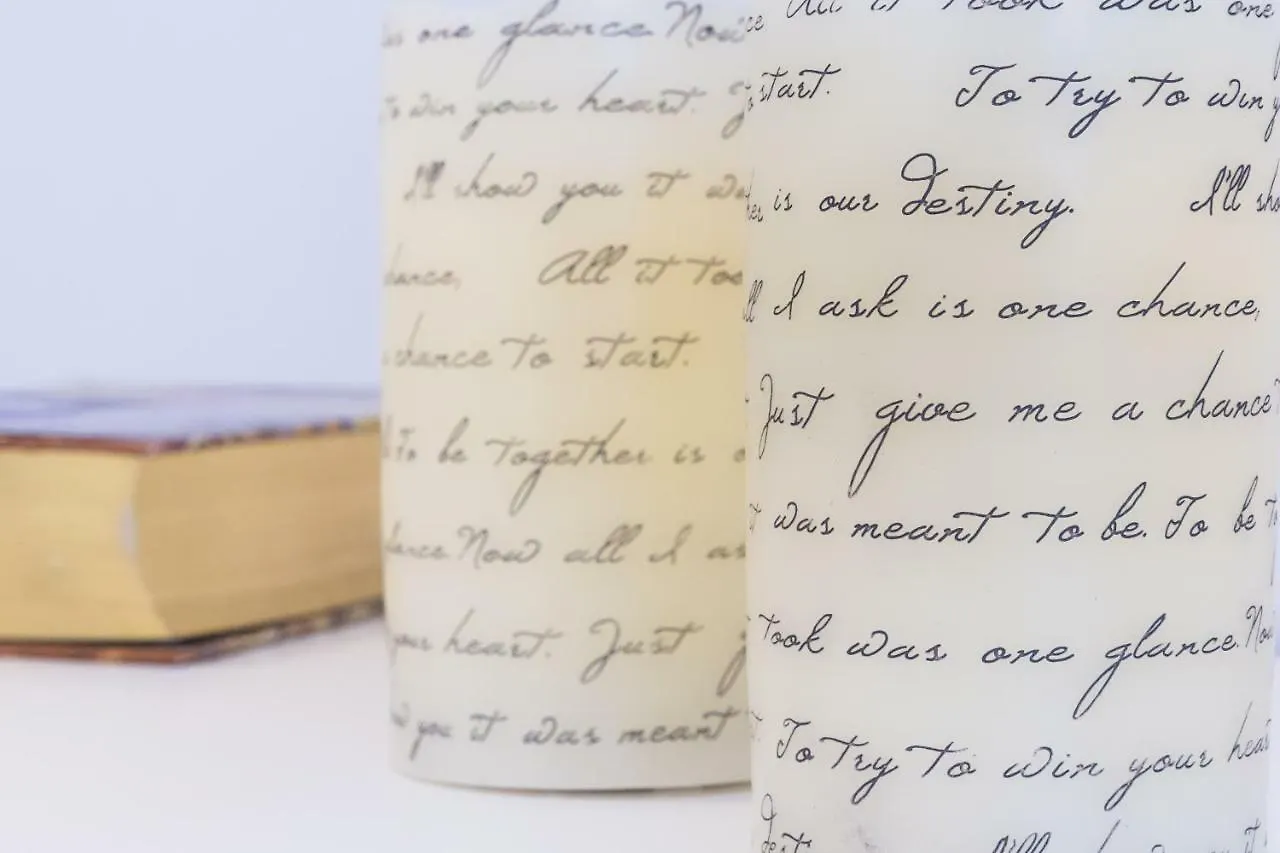 one glance. Now
to win your heart.
I'll show you it
chance, All it too
chance to start.
to be together is
glance. Now all I as
your heart. Just
you it was meant
All it took was one
start. To try to win y
her is our destiny. I'll sho
ll I ask is one chance,
Just give me a chance
t was meant to be. To be t
took was one glance. Now
To try to win your hear
dest I'll